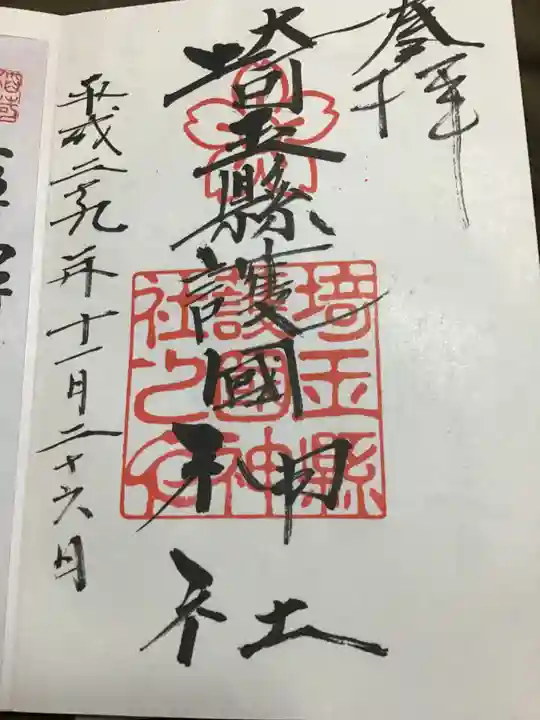 奉拝
埼玉縣護國神社
埼玉縣
護國神
社之印
平成二十九年十一月二十六日